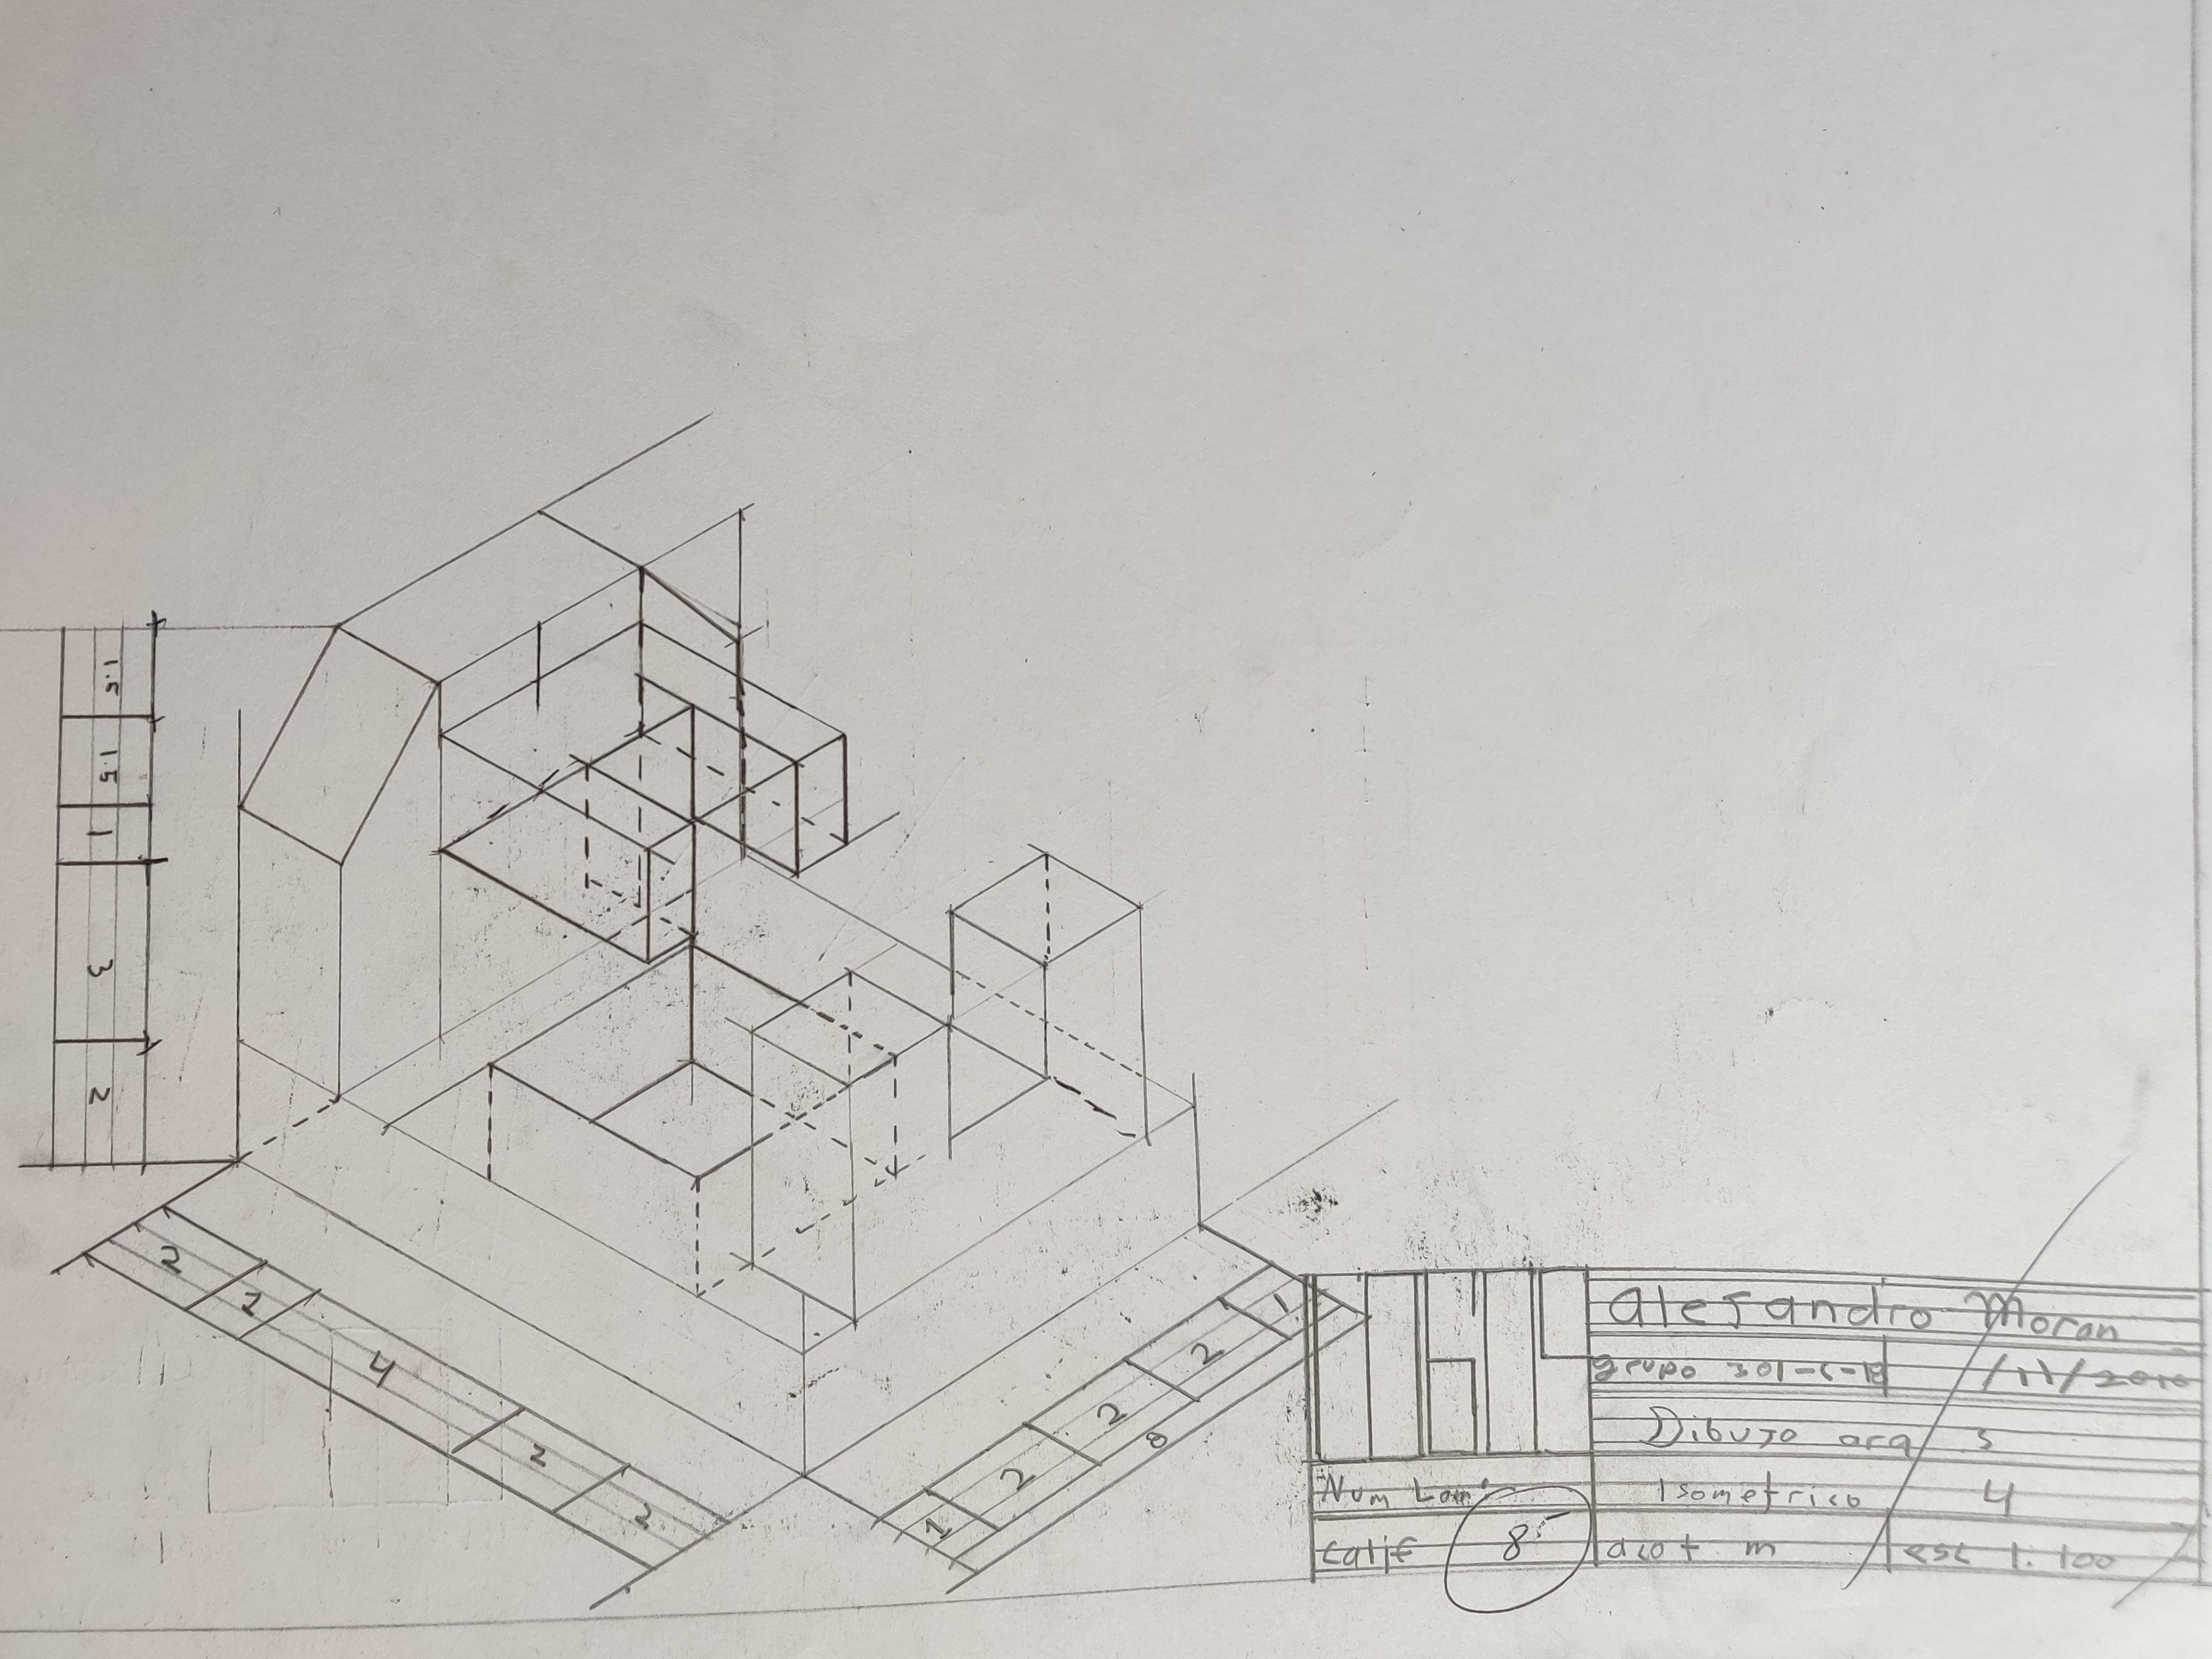 1.5
1.5
1
3
2
2
1
4
2
2
1
2
2
2
1
8
alejandro Moran
grupo 301-C-19
Dibujo arq 3
Num Lam:
Isometrico 4
Calif 8
acot m esc 1:100